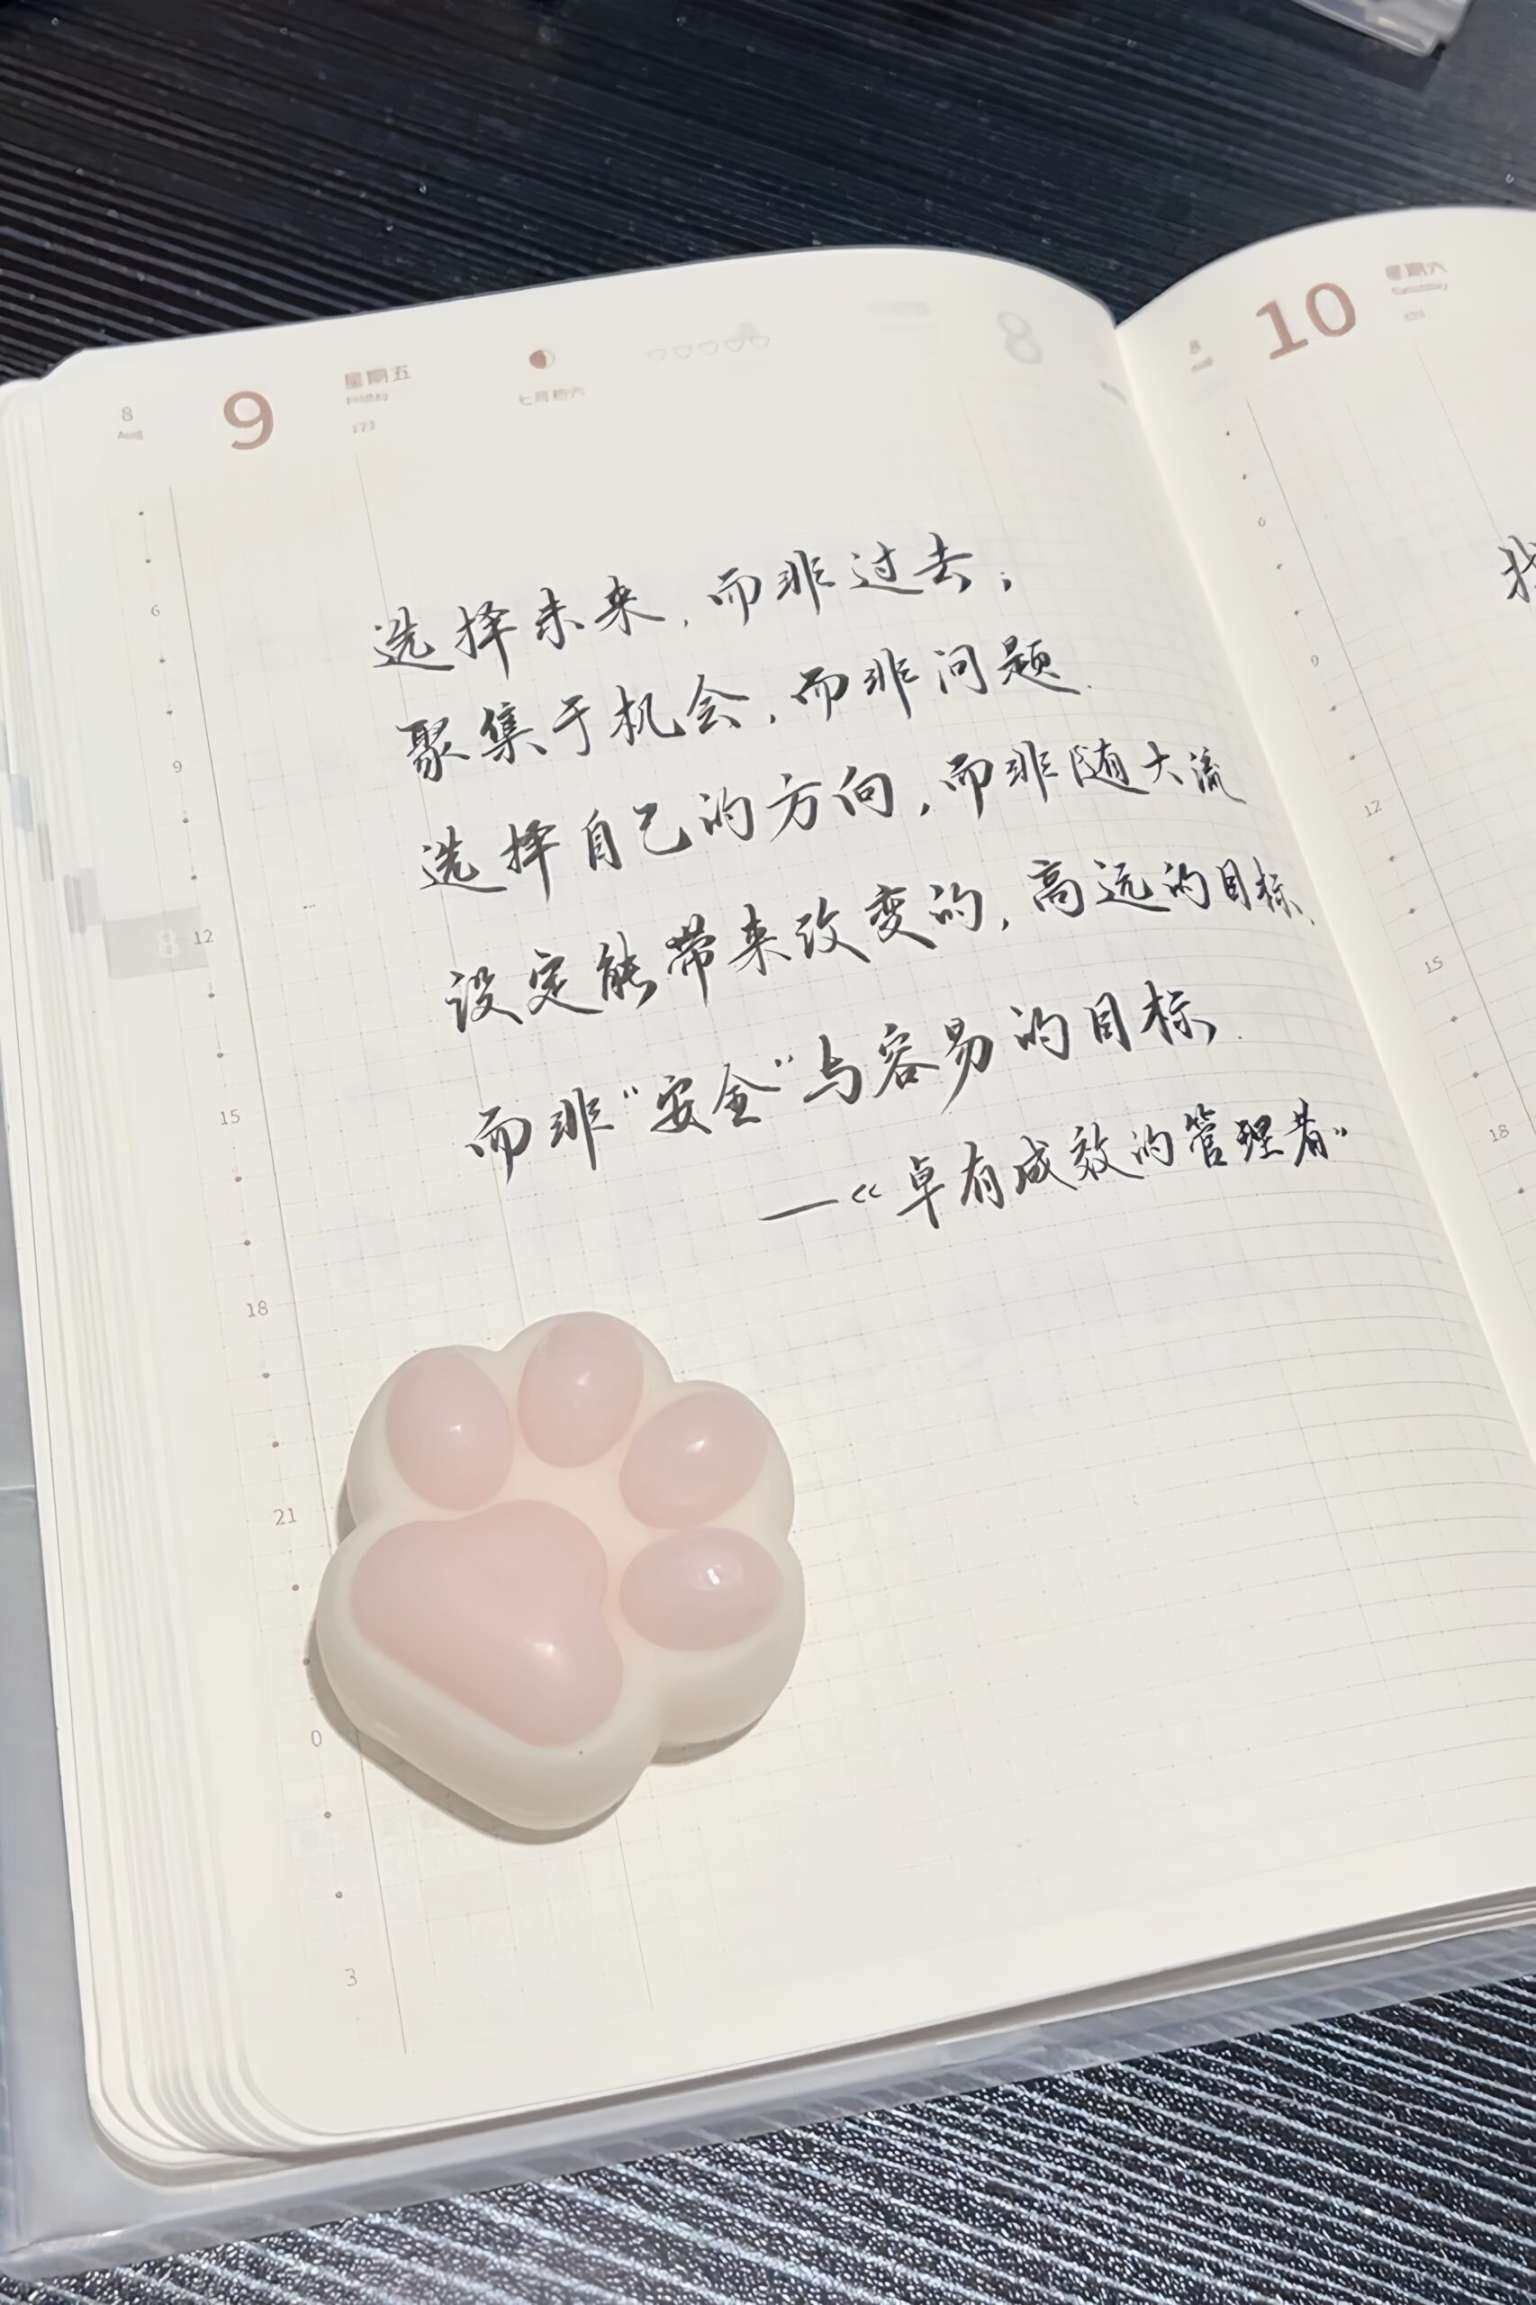 8
Aug
9
星期五
七月初六
8
8
10
星期六
Saturday
选择未来，而非过去；
聚集于机会，而非问题.
选择自己的方向，而非随大流
设定能带来改变的，高远的目标、
而非“安全”与容易的目标.
—《卓有成效的管理者》
6
9
8
12
15
18
21
0
3
6
9
12
15
18